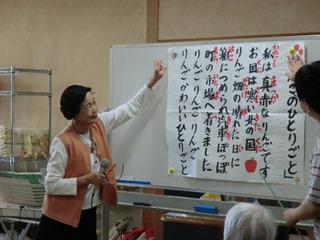 りんごのひとりごと
私は真赤なりんごです
お国は寒い北の国
りんご畑の晴れた日に
箱につめられ汽車ぽっぽ
町の市場へ着きました
りんご りんご りんご
りんごかわいいひとりごと